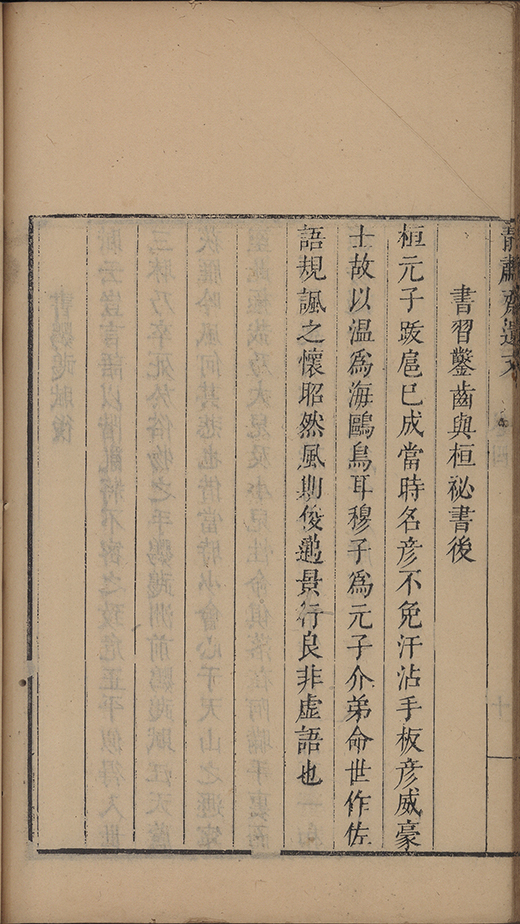 青霞齋遺文
書習鑿齒與桓祕書後
桓元子跋扈已成當時名彦不免汗沾手板彦威豪
士故以温為海鷗鳥耳穆子為元子介弟命世作佐
語規諷之懷昭然風期俊邁景行良非虚語也